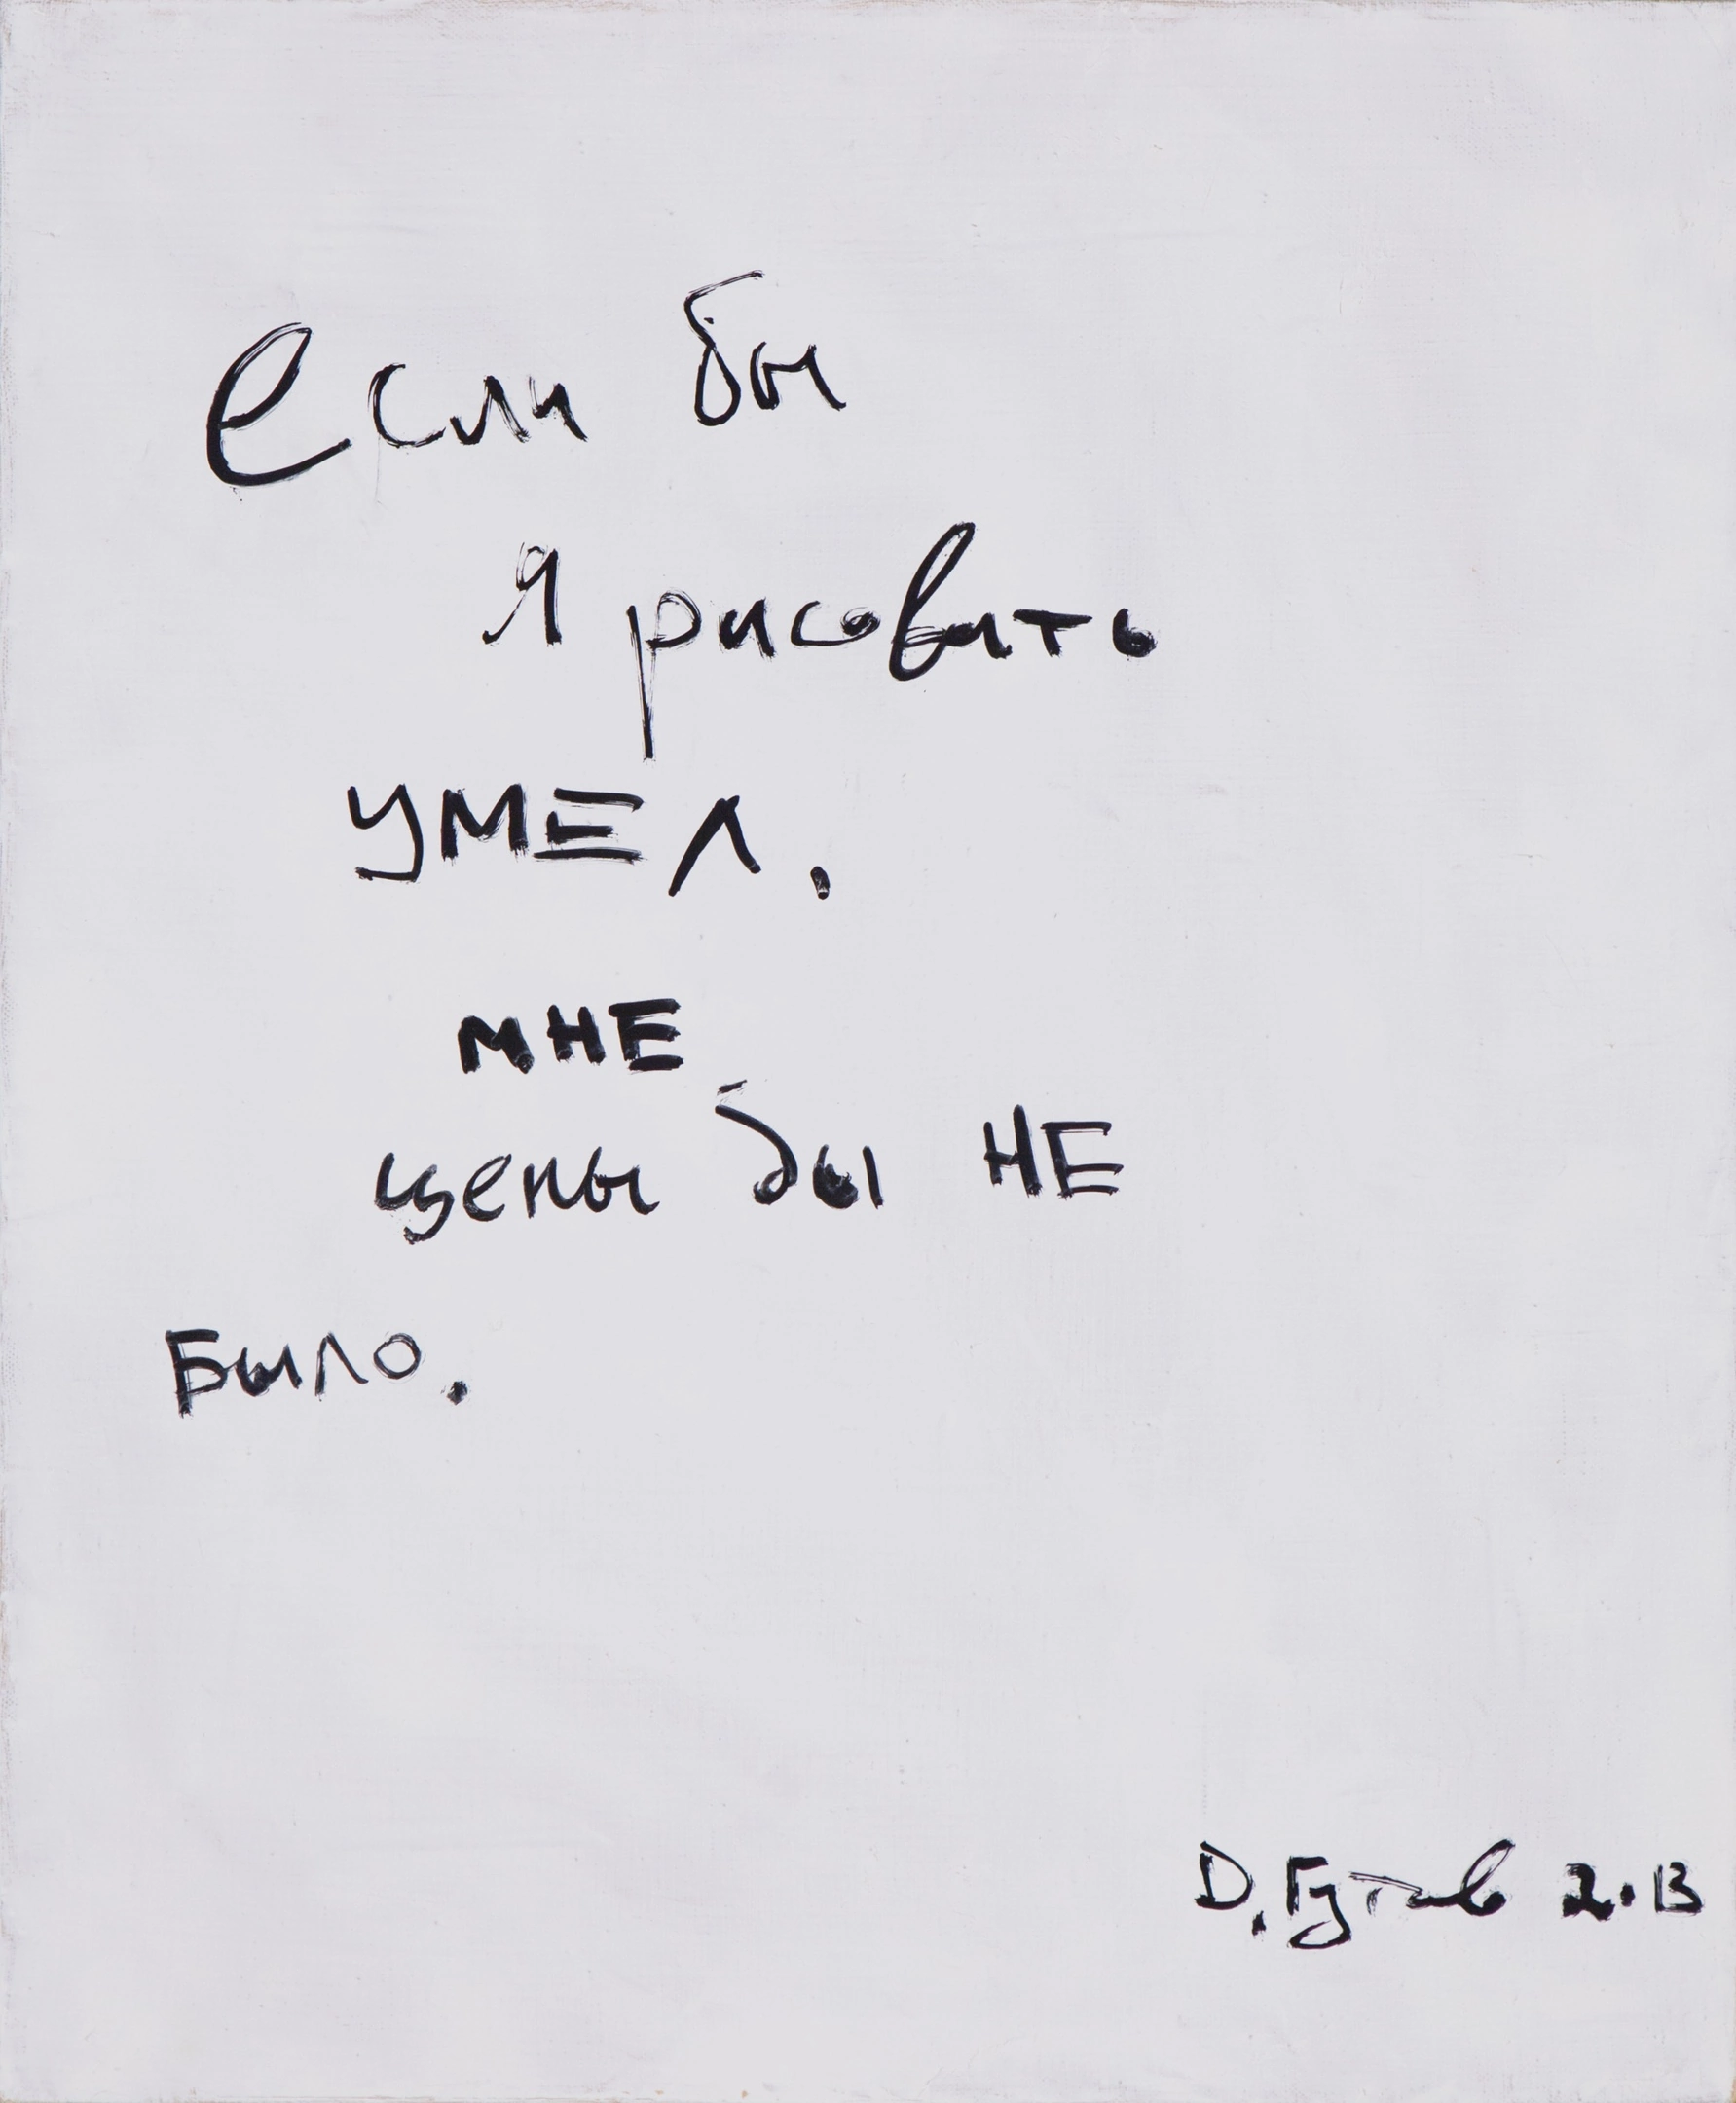 Если бы
я рисовать
УМЕЛ.
МНЕ
цены бы НЕ
Было.
D. Гутов 2.13